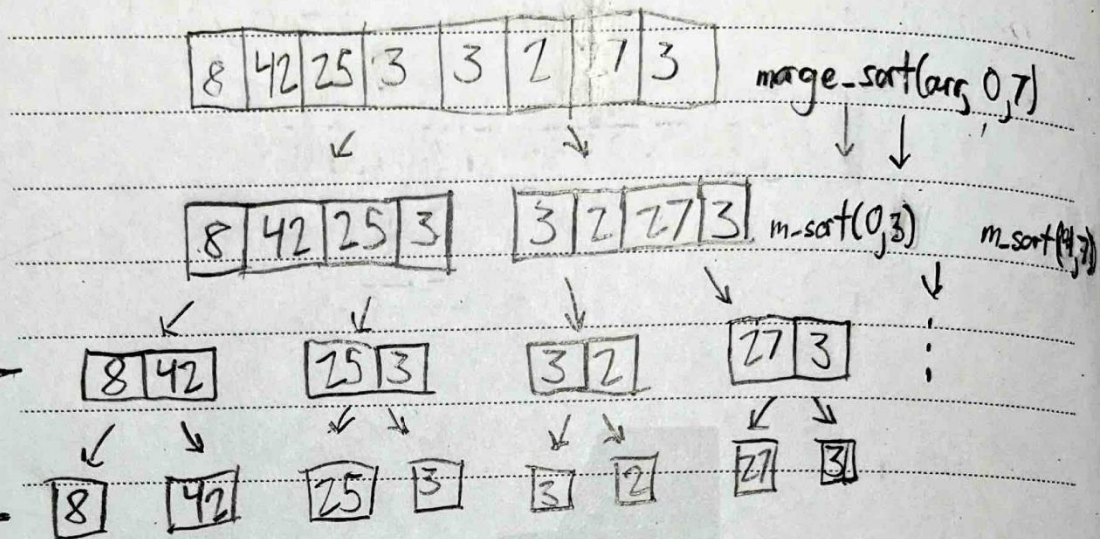 8 42 25 3 3 2 27 3 merge_sort(arr, 0,7)
8 42 25 3 3 2 27 3 m_sort(0,3) m_sort(4,7)
8 42 25 3 3 2 27 3
8 42 25 3 3 2 27 3